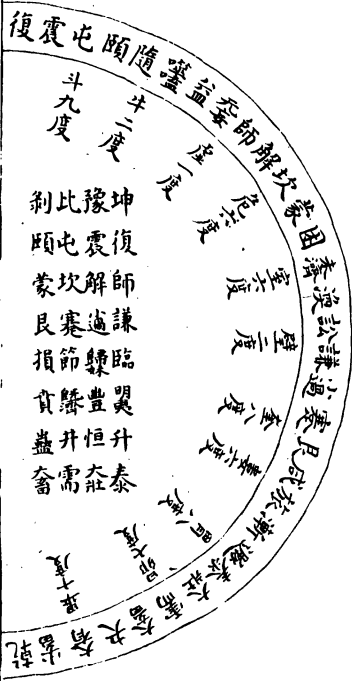 復震屯頤隨噬嗑益无妄師解坎蒙困未濟渙訟謙小過蹇艮咸旅漸遯泰大壯需大畜夬大有小畜乾
斗九度
斗二度
虛一度
危六度
室六度
壁二度
奎八度
婁六度
胃八度
昴七度
畢十度
坤復師謙臨明夷升泰
豫震解小過歸妹豐恒大壯
比屯坎蹇節既濟井需
剝頤蒙艮損賁蠱大畜